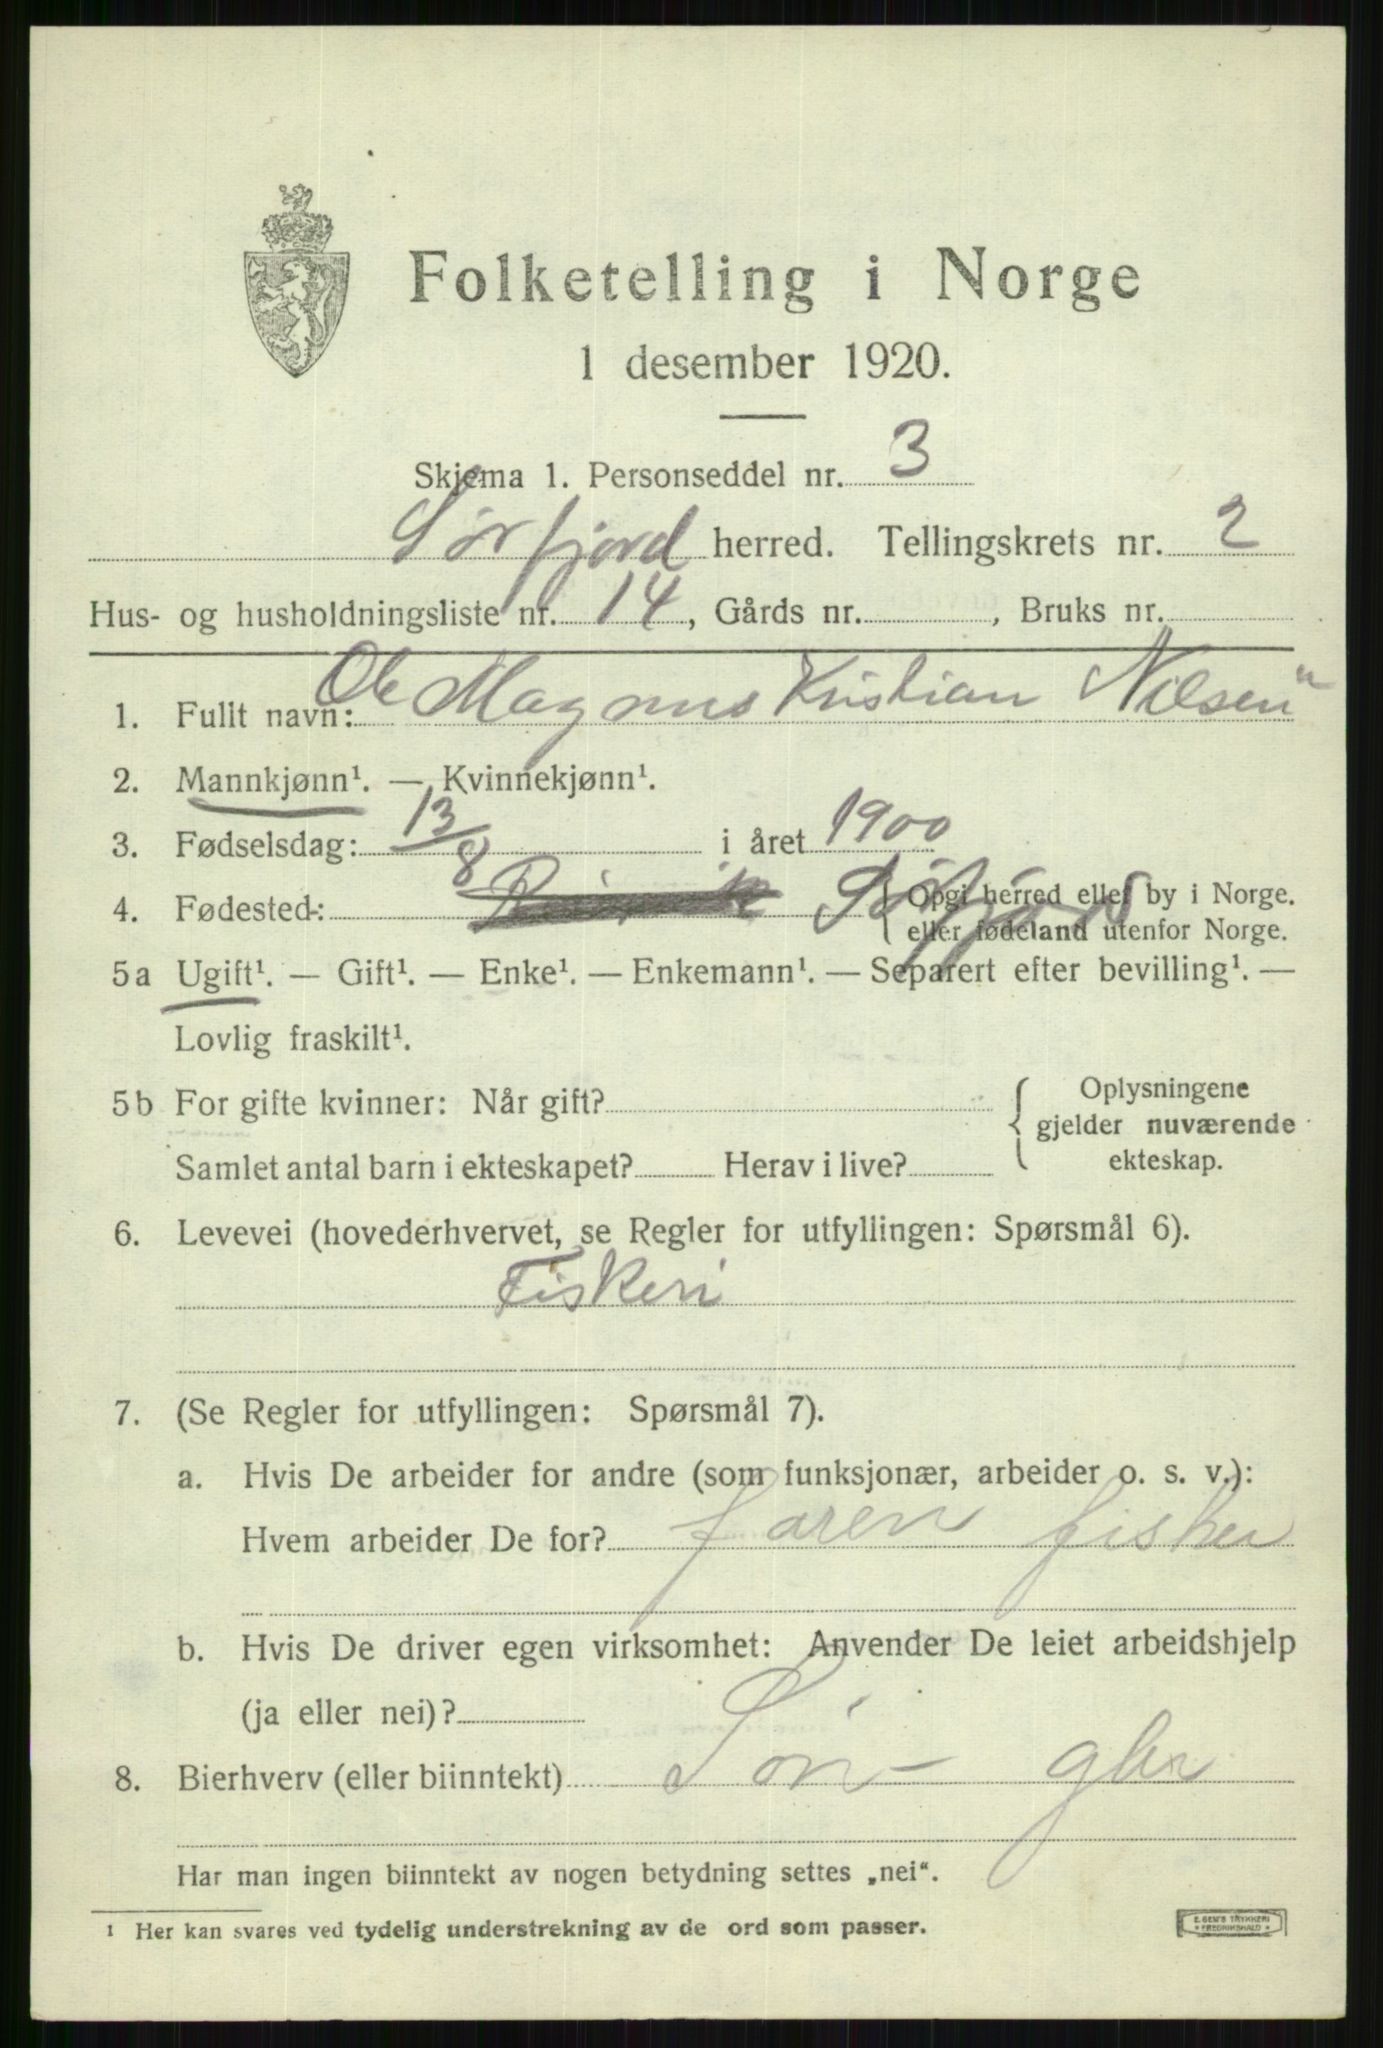 Folketelling i Norge
1 desember 1920.
Skjema 1. Personseddel nr. 3
Sørfjord herred. Tellingskrets nr. 2
Hus- og husholdningsliste nr. 14, Gårds nr. , Bruks nr.
1. Fullt navn: Ole Magnus Kristian Nilsen "
2. Mannkjønn¹. — Kvinnekjønn¹.
3. Fødselsdag: 13/8 i året 1900
4. Fødested: { Opgi herred eller by i Norge.
eller fødeland utenfor Norge.
5a Ugift¹. — Gift¹. — Enke¹. — Enkemann¹. — Separert efter bevilling¹. —
Lovlig fraskilt¹.
5b For gifte kvinner: Når gift? { Oplysningene
gjelder nuværende
Samlet antal barn i ekteskapet? Herav i live? ekteskap.
6. Levevei (hovederhvervet, se Regler for utfyllingen: Spørsmål 6).
Fiskeri
7. (Se Regler for utfyllingen: Spørsmål 7).
a. Hvis De arbeider for andre (som funksjonær, arbeider o. s. v.):
Hvem arbeider De for? faren fisker
b. Hvis De driver egen virksomhet: Anvender De leiet arbeidshjelp
(ja eller nei)?
8. Bierhverv (eller biinntekt)
Har man ingen biinntekt av nogen betydning settes „nei“.
¹ Her kan svares ved tydelig understrekning av de ord som passer.
E. SEM'S TRYKKERI
* FREDRIKSHALD *